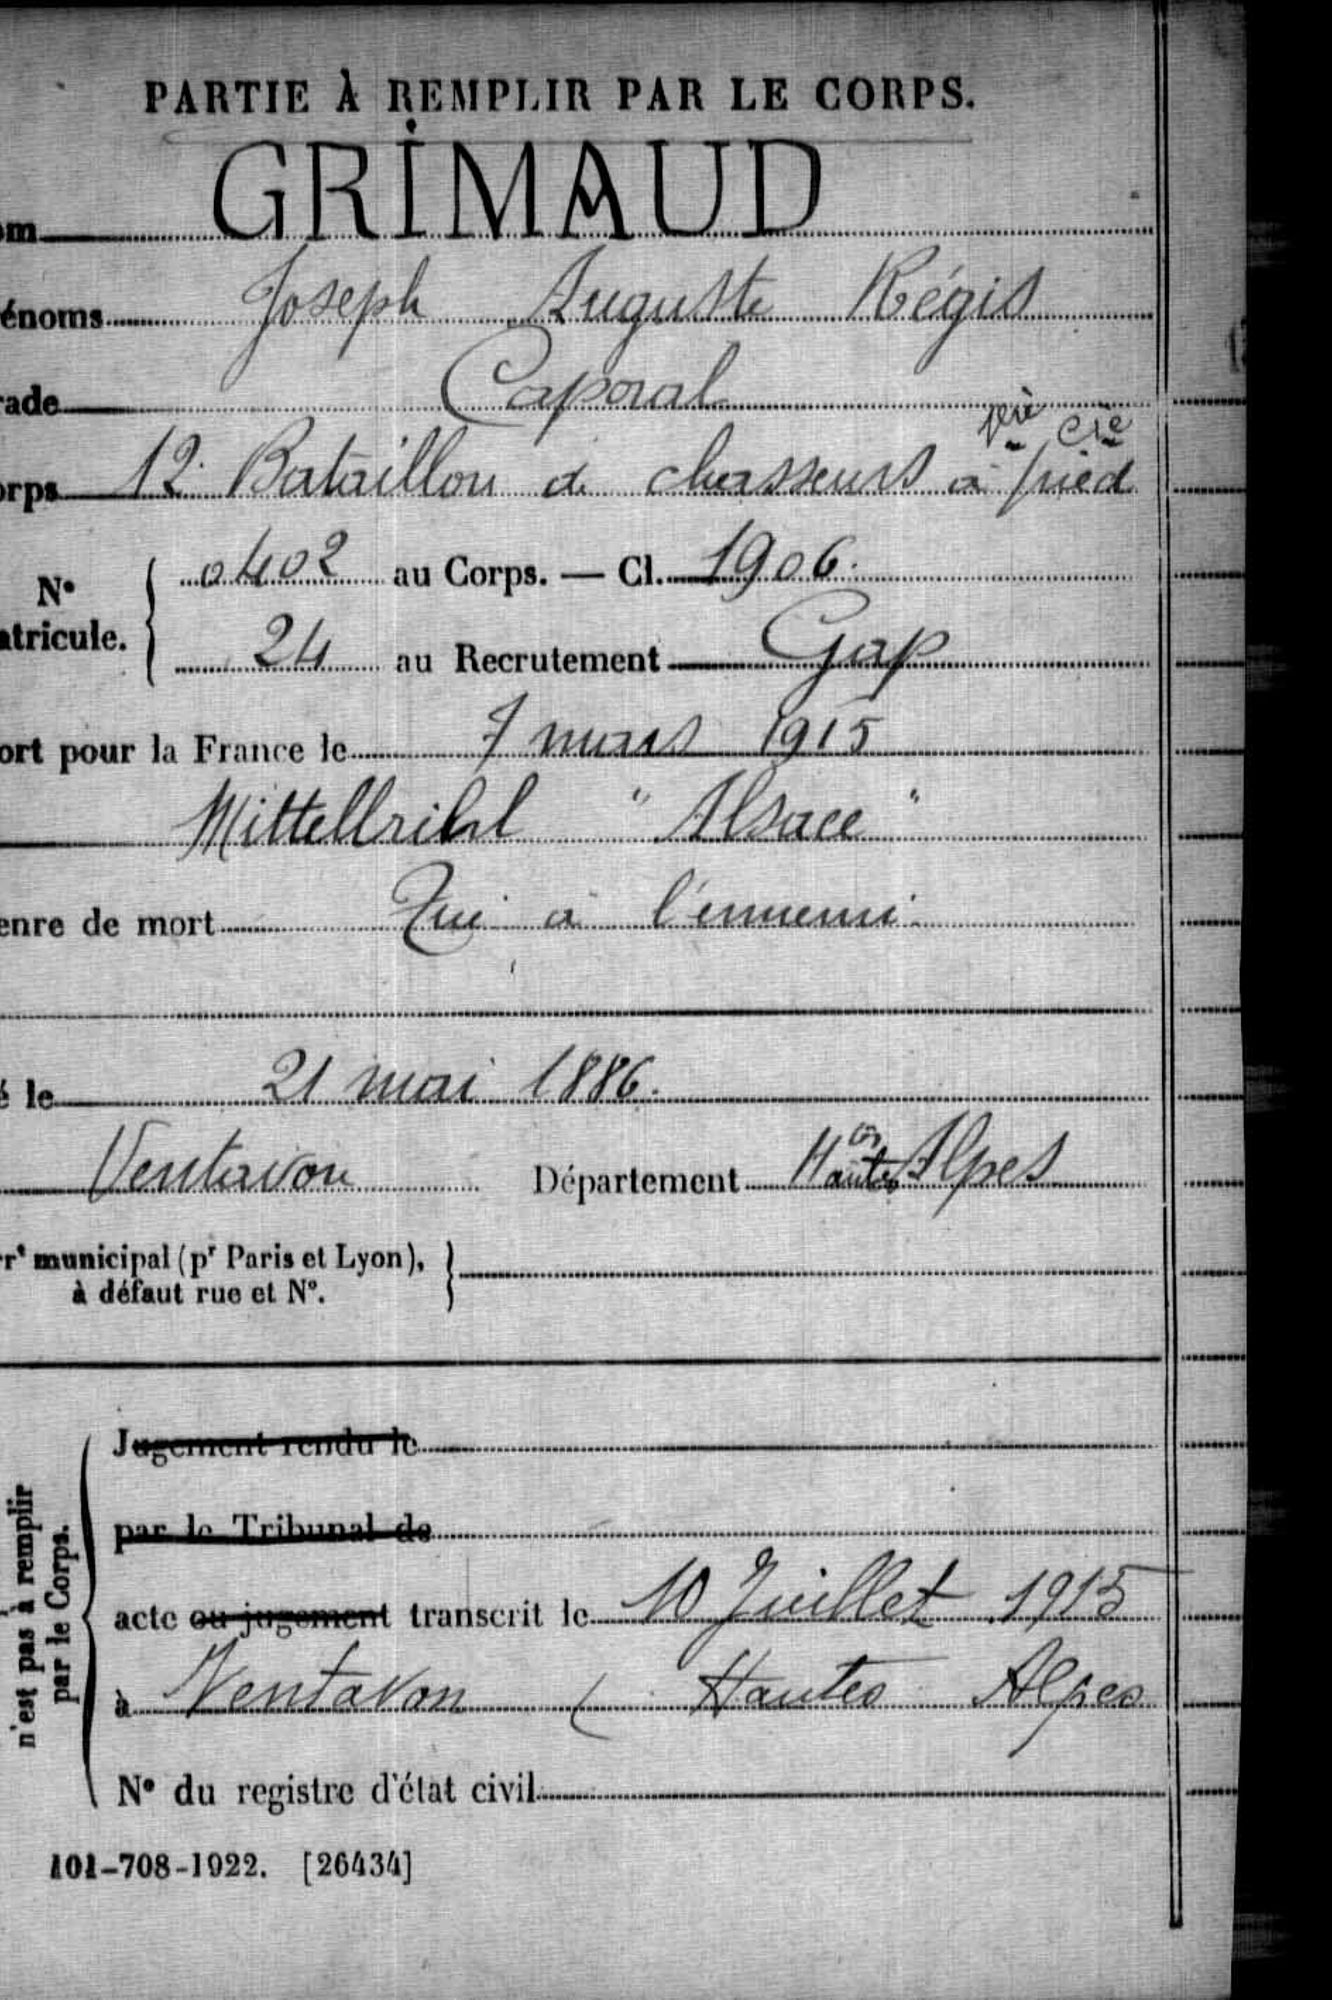 PARTIE À REMPLIR PAR LE CORPS.
om GRIMAUD
énoms Joseph Auguste Régis
rade Caporal
1ère Cie
orps 12. Bataillon de chasseurs à pied
N° 0402 au Corps. — Cl. 1906.
atricule. 24 au Recrutement Gap
ort pour la France le 7 mars 1915
Mittellrihl "Alsace"
enre de mort Tué à l'ennemi
é le 21 mai 1886.
Ventavon Département Hautes Alpes
rrt municipal (pr Paris et Lyon),
à défaut rue et N°.
Jugement rendu le
par le Tribunal de
acte ou jugement transcrit le 10 Juillet 1915
à Ventavon ( Hautes Alpes
N° du registre d'état civil
n'est pas à remplir
par le Corps.
101-708-1922. [26434]